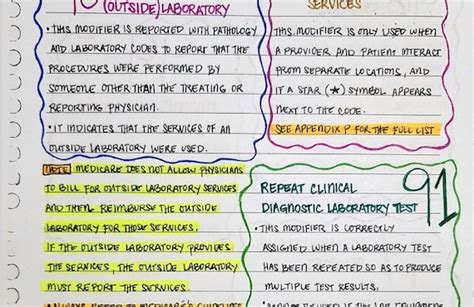 (OUTSIDE) LABORATORY
• THIS MODIFIER IS REPORTED WITH PATHOLOGY
AND LABORATORY CODES TO REPORT THAT THE
PROCEDURES WERE PERFORMED BY
SOMEONE OTHER THAN THE TREATING OR
REPORTING PHYSICIAN.
• IT INDICATES THAT THE SERVICES OF AN
OUTSIDE LABORATORY WERE USED.
NOTE MEDICARE DOES NOT ALLOW PHYSICIANS
TO BILL FOR OUTSIDE LABORATORY SERVICES
AND THEN REIMBURSE THE OUTSIDE
LABORATORY FOR THOSE SERVICES.
IF THE OUTSIDE LABORATORY PROVIDES
THE SERVICES, THE OUTSIDE LABORATORY
MUST REPORT THE SERVICES.
SERVICES
THIS MODIFIER IS ONLY USED WHEN
A PROVIDER AND PATIENT INTERACT
FROM SEPARATE LOCATIONS, AND
IF A STAR (★) SYMBOL APPEARS
NEXT TO THE CODE.
SEE APPENDIX P FOR THE FULL LIST
REPEAT CLINICAL 91
DIAGNOSTIC LABORATORY TEST
• THIS MODIFIER IS CORRECTLY
ASSIGNED WHEN A LABORATORY TEST
HAS BEEN REPEATED SO AS TO PRODUCE
MULTIPLE TEST RESULTS.